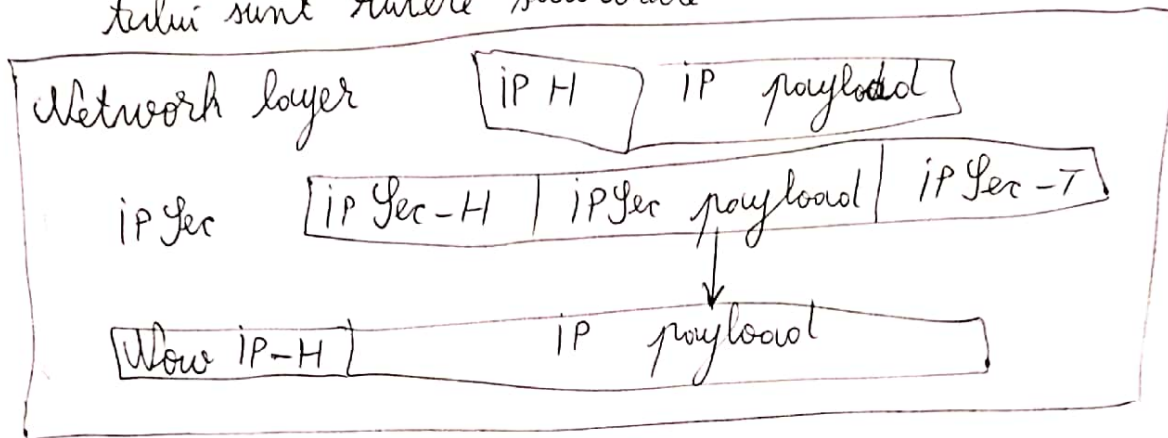 tului sunt rutere
Network layer iP H iP payload
iPSec iPSec-H iPSec payload iPSec-T
New iP-H iP payload